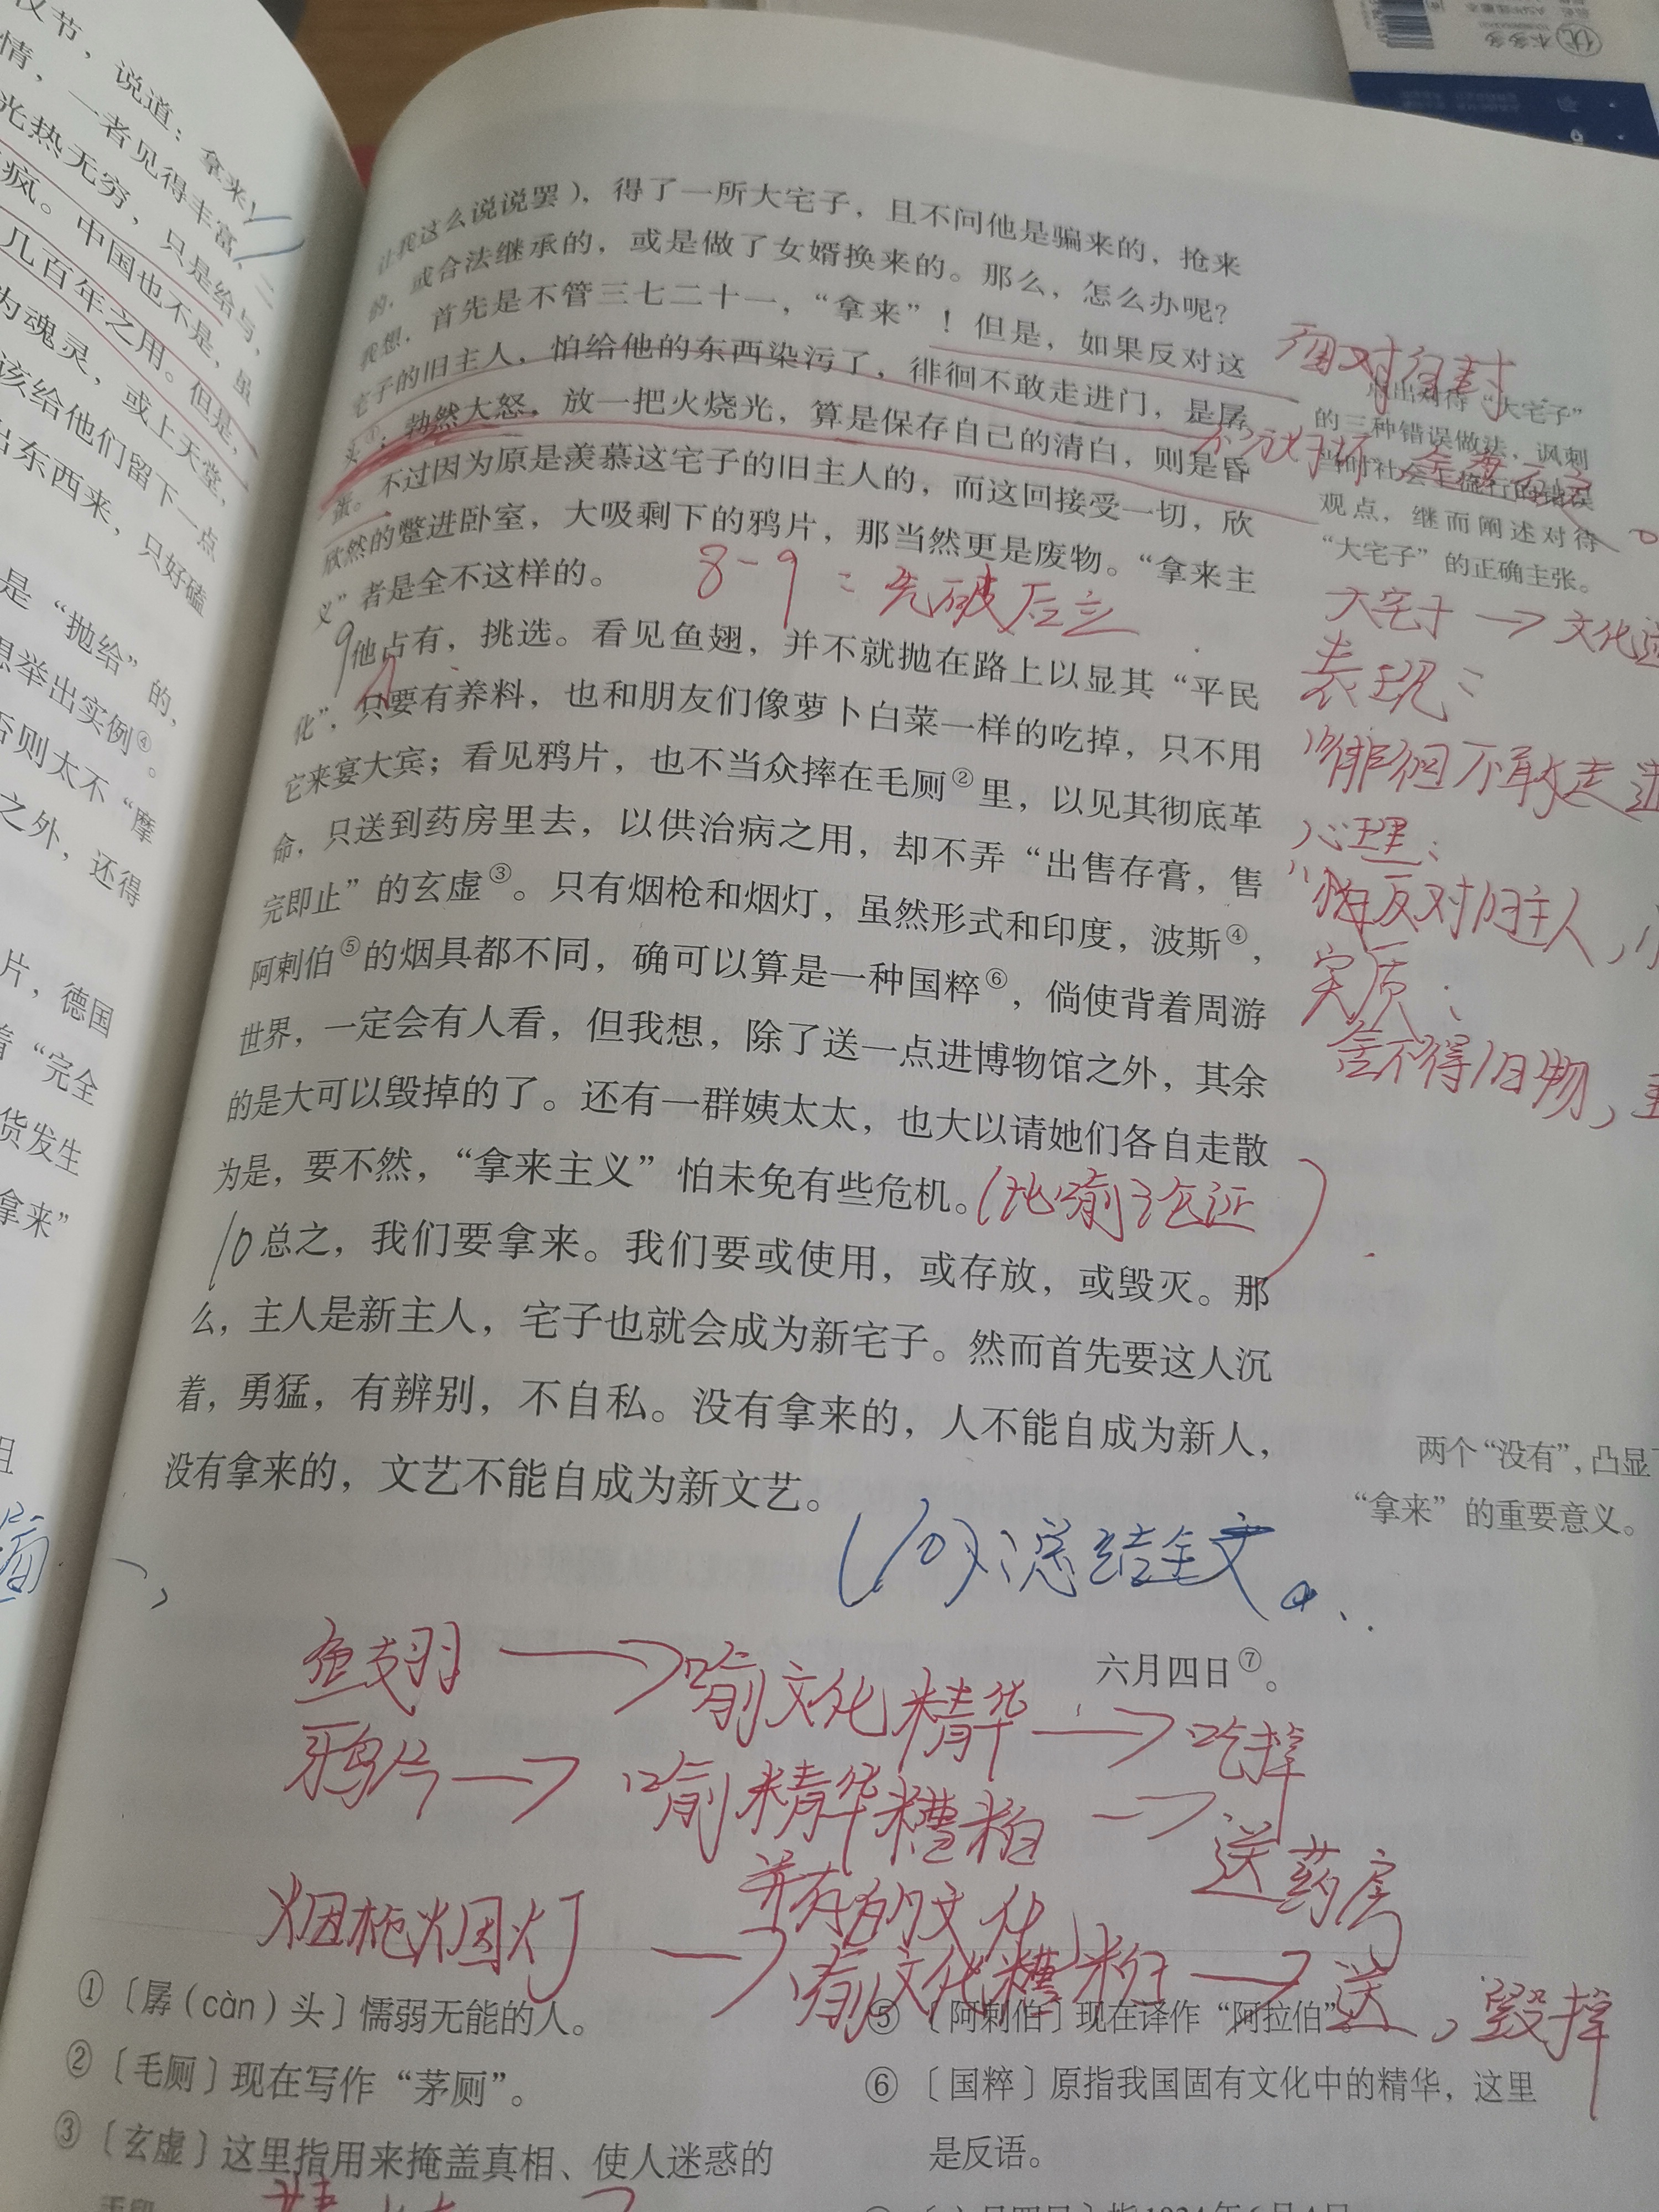 汉节，说道：拿来！
情，一者见得丰富，二
光热无穷，只是给与，
疯。中国也不是，虽
几百年之用。但是，
为魂灵，或上天堂，
该给他们留下一点
出东西来，只好磕
是“抛给”的，
想举出实例④。
否则太不“摩
之外，还得
片，德国
着“完全
货发生
拿来”
让我这么说说罢），得了一所大宅子，且不问他是骗来的，抢来
的，或合法继承的，或是做了女婿换来的。那么，怎么办呢？
我想，首先是不管三七二十一，“拿来”！但是，如果反对这
宅子的旧主人，怕给他的东西染污了，徘徊不敢走进门，是孱
头①；勃然大怒，放一把火烧光，算是保存自己的清白，则是昏
蛋。不过因为原是羡慕这宅子的旧主人的，而这回接受一切，欣
欣然的蹩进卧室，大吸剩下的鸦片，那当然更是废物。“拿来主
义”者是全不这样的。
8-9：先破后立
9他占有，挑选。看见鱼翅，并不就抛在路上以显其“平民
化”，只要有养料，也和朋友们像萝卜白菜一样的吃掉，只不用
它来宴大宾；看见鸦片，也不当众摔在毛厕②里，以见其彻底革
命，只送到药房里去，以供治病之用，却不弄“出售存膏，售
完即止”的玄虚③。只有烟枪和烟灯，虽然形式和印度，波斯④，
阿剌伯⑤的烟具都不同，确可以算是一种国粹⑥，倘使背着周游
世界，一定会有人看，但我想，除了送一点进博物馆之外，其余
的是大可以毁掉的了。还有一群姨太太，也大以请她们各自走散
为是，要不然，“拿来主义”怕未免有些危机。（比喻论证）
10总之，我们要拿来。我们要或使用，或存放，或毁灭。那
么，主人是新主人，宅子也就会成为新宅子。然而首先要这人沉
着，勇猛，有辨别，不自私。没有拿来的，人不能自成为新人，
没有拿来的，文艺不能自成为新文艺。
(10)：总结全文。
六月四日⑦。
点出对待“大宅子”
的三种错误做法，讽刺
当时社会上流行的错误
观点，继而阐述对待
“大宅子”的正确主张。
大宅子→文化遗
表现：
徘徊不敢走进
心理：
反对旧主人，
实质：
舍不得旧物，
两个“没有”，凸显
“拿来”的重要意义。
鱼翅→喻文化精华→吃掉
鸦片→喻精华糟粕
并存的文化→送药房
烟枪烟灯→喻文化糟粕→送，毁掉
①〔孱（càn）头〕懦弱无能的人。
②〔毛厕〕现在写作“茅厕”。
③〔玄虚〕这里指用来掩盖真相、使人迷惑的
⑤〔阿剌伯〕现在译作“阿拉伯”。
⑥〔国粹〕原指我国固有文化中的精华，这里
是反语。